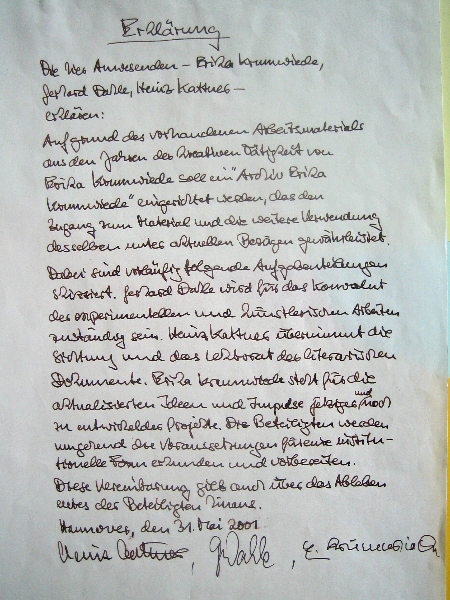 Erklärung
Die hier Anwesenden – Erika Krumwiede,
Gerhard Dalle, Heinz Kattner –
erklären:
Aufgrund des vorhandenen Arbeitsmaterials
aus den Jahren der kreativen Tätigkeit von
Erika Krumwiede soll ein "Archiv Erika
Krumwiede" eingerichtet werden, das den
Zugang zum Material und die weitere Verwendung
desselben unter aktuellen Bezügen gewährleistet.
Dabei sind vorläufig folgende Aufgabenteilungen
skizziert. Gerhard Dalle wird für das Konvolut
der experimentellen und künstlerischen Arbeiten
zuständig sein. Heinz Kattner übernimmt die
Sichtung und das Lektorat der literarischen
Dokumente. Erika Krumwiede steht für die
aktualisierten Ideen und Impulse jetziger und noch
zu entwickelnder Projekte. Die Beteiligten werden
umgehend die Voraussetzungen für eine institu-
tionelle Form erkunden und vorbereiten.
Diese Vereinbarung gilt auch über das Ableben
eines der Beteiligten hinaus.
Hannover, den 31. Mai 2001
Heinz Kattner, G. Dalle, E. Krumwiede